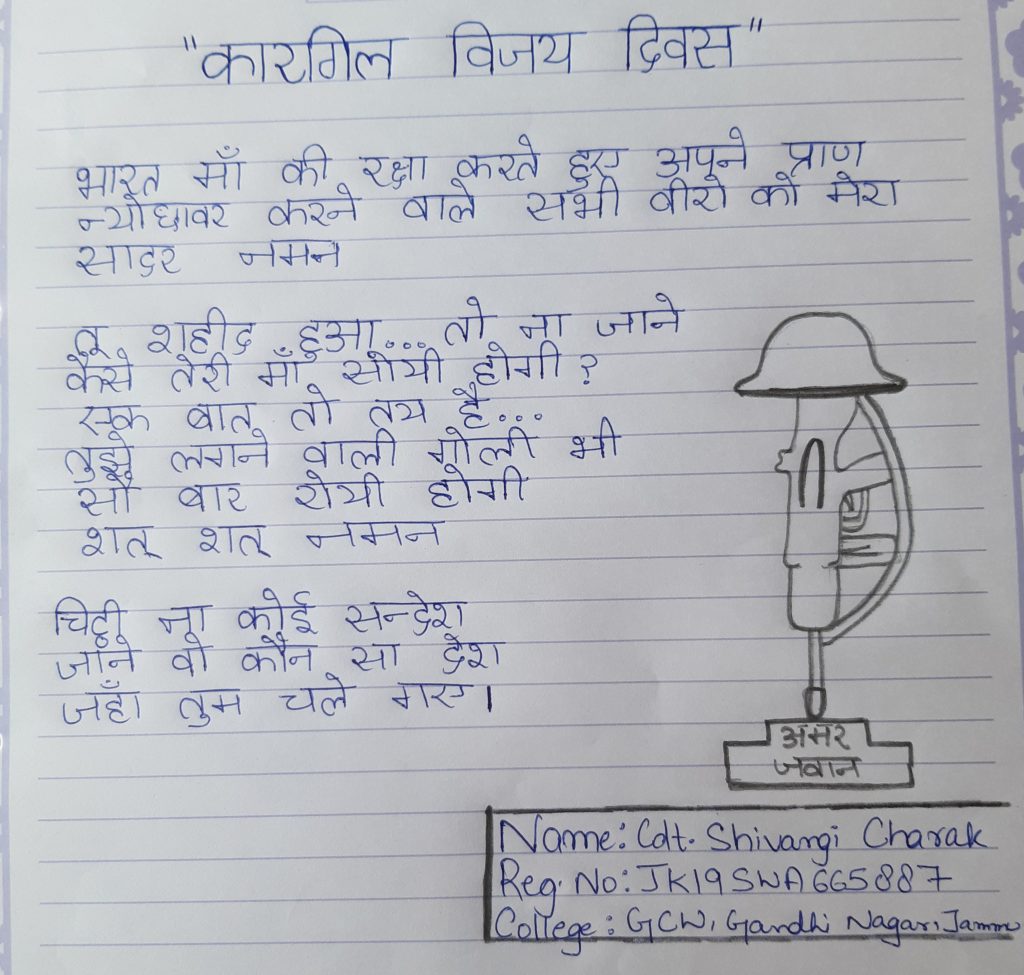 "कारगिल विजय दिवस"
भारत माँ की रक्षा करते हुए अपने प्राण
न्योछावर करने वाले सभी वीरों को मेरा
सादर नमन
तू शहीद हुआ... तो ना जाने
कैसे तेरी माँ सोयी होगी?
एक बात तो तय है...
तुझे लगने वाली गोली भी
सौ बार रोयी होगी
शत् शत् नमन
चिट्ठी ना कोई सन्देश
जाने वो कौन सा देश
जहाँ तुम चले गए।
अमर
जवान
Name: Cdt. Shivangi Charak
Reg. No: JK19SWA665887
College: GCW, Gandhi Nagar, Jammu